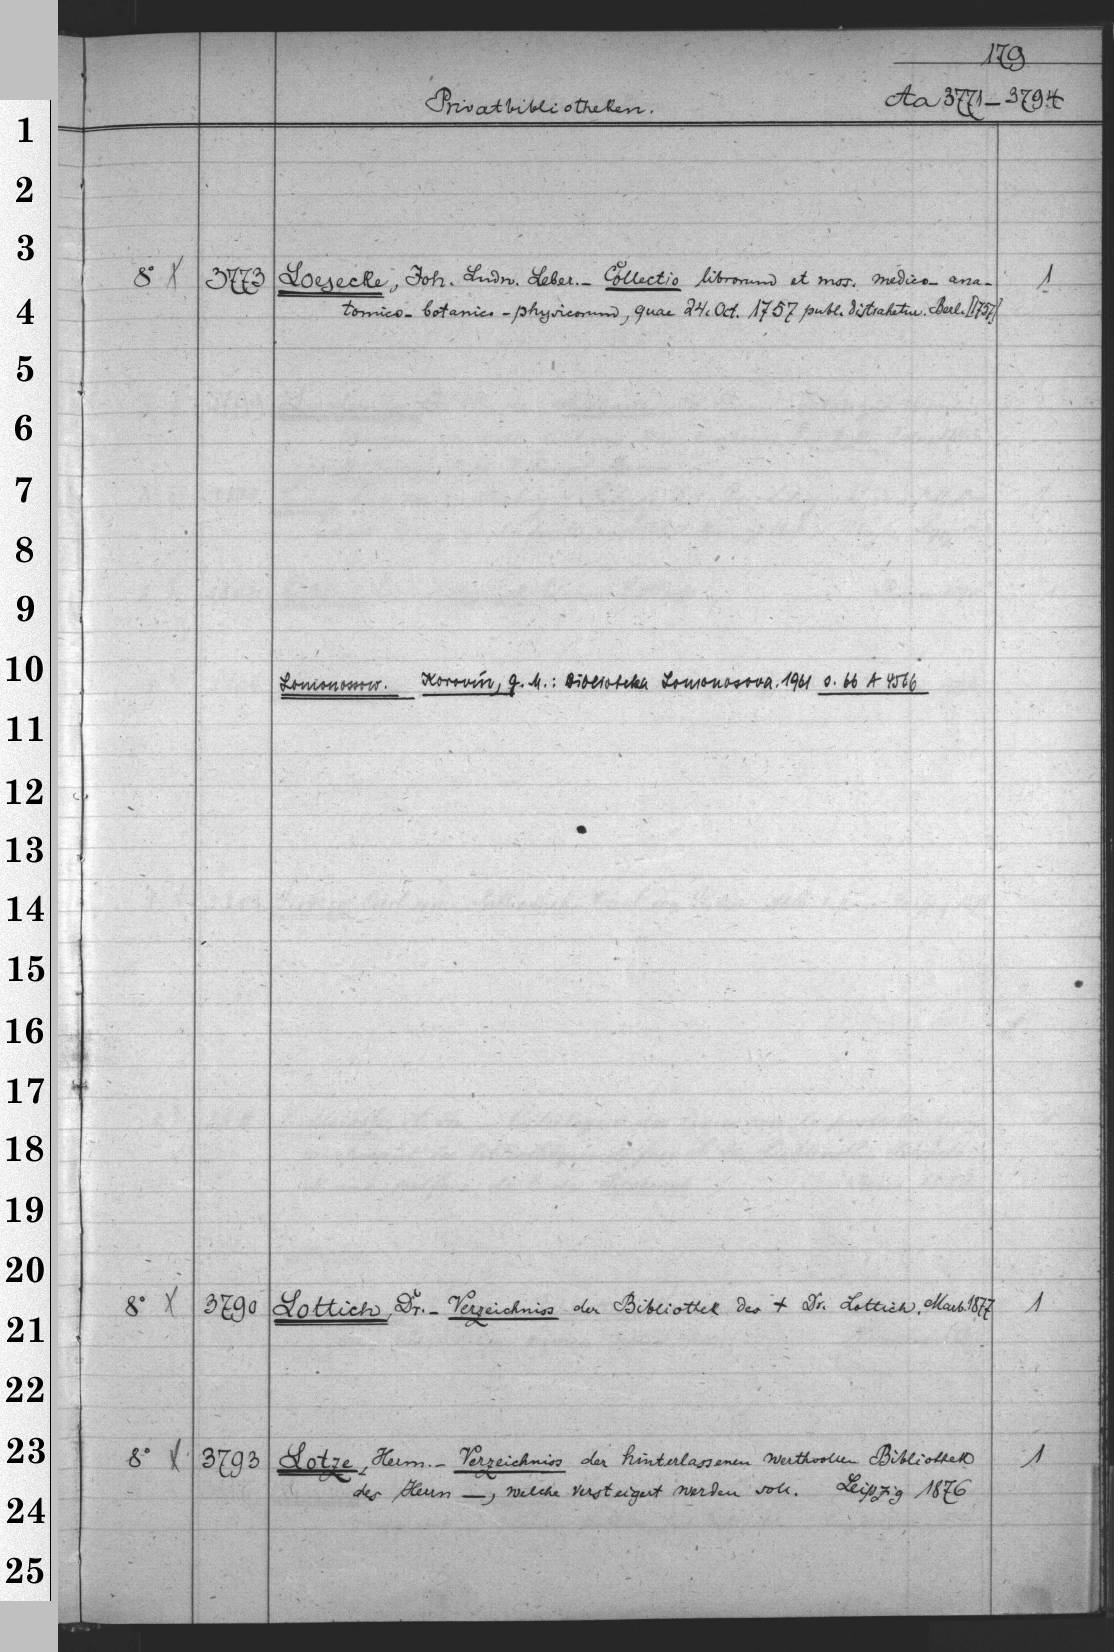 179
Privatbibliotheken.
Aa 3771-3794
1
2
3
8° X 3773 Loesecke, Joh. Ludw. Leber. - Collectio librorum et mss. medico- ana- 1
4
tomico- botanico - physicorum, quae 24. Oct. 1757 publ. distrahetur. Berl. [1757]
5
6
7
8
9
10
Lomonossow. Korovin, G. M.: Biblioteka Lomonosova. 1961 s. 66 A 4566
11
12
13
14
15
16
17
18
19
20
8° X 3790 Lottich, Dr. - Verzeichniss der Bibliothek des + Dr. Lottich. Marb. 1877 1
21
22
23
8° X 3793 Lotze, Herm. - Verzeichniss der hinterlassenen werthvollen Bibliothek 1
24
des Herrn —, welche versteigert werden soll. Leipzig 1876
25